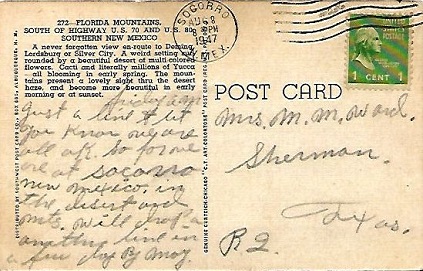 272—FLORIDA MOUNTAINS,
SOUTH OF HIGHWAY U.S. 70 AND U.S. 80,
SOUTHERN NEW MEXICO
A never forgotten view en-route to Deming,
Lordsburg or Silver City. A weird setting
rounded by a beautiful desert of multi-colored
flowers. Cacti and literally millions of Yucca
—all blooming in early spring. The moun-
tains present a lovely sight thru the desert
haze, and become more beautiful in early
morning or at sunset.
SOCORRO
8
PM
1947
MEX.
1 CENT 1
POST CARD
Friday
Just a line to let
you know we are
all ok. so far we
are at Socorro
new mexico. in
the desert and
mts. will drop a
line in
a few day By
Mrs. M. M. Ward.
Sherman.
Texas.
R2.
GENUINE CURTEICH-CHICAGO "C.T. ART-COLORTONE" POST CARD
DISTRIBUTED BY SOUTHWEST POST CARD CO., ALBUQUERQUE, N. M.